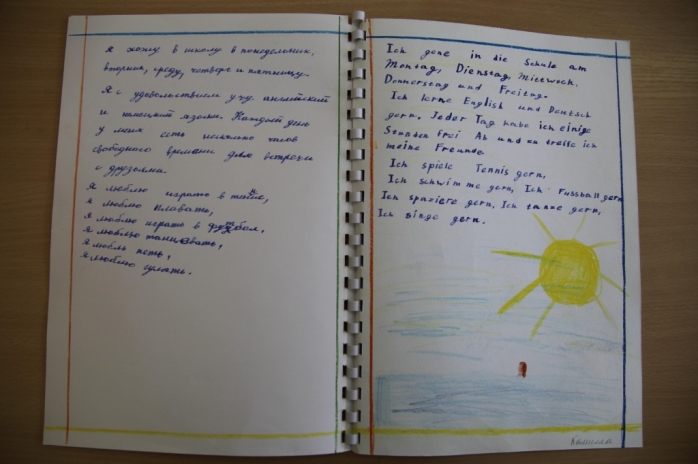 Я хожу в школу в понедельник,
вторник, среду, четверг и пятницу.
Я с удовольствием учу английский
и немецкий языки. Каждый день
у меня есть несколько часов
свободного времени для встречи
с друзьями.
Я люблю играть в теннис,
я люблю плавать,
я люблю играть в футбол,
я люблю танцевать,
я люблю петь,
я люблю гулять.
Ich gehe in die Schule am
Montag, Dienstag, Mittwoch,
Donnerstag und Freitag.
Ich lerne English und Deutsch
gern. Jeder Tag habe ich einige
Stunden frei Ab und an treffe ich
meine Freunde
Ich spiele Tennis gern,
Ich schwimme gern, Ich Fussball gern
Ich spaziere gern, Ich tanze gern,
Ich singe gern.
Камилла